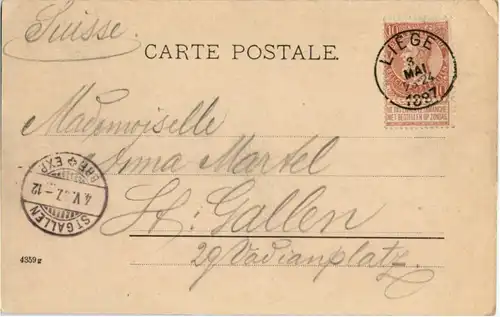 Suisse.
CARTE POSTALE.
10 10
LIÈGE
3
MAI
1897
NE PAS LIVRER LE DIMANCHE
NIET BESTELLEN OP ZONDAG
Mademoiselle
Anna Martel
St. Gallen
29 Vadianplatz.
BRF EXP.
4.V.97.-12
ST. GALLEN
4359g